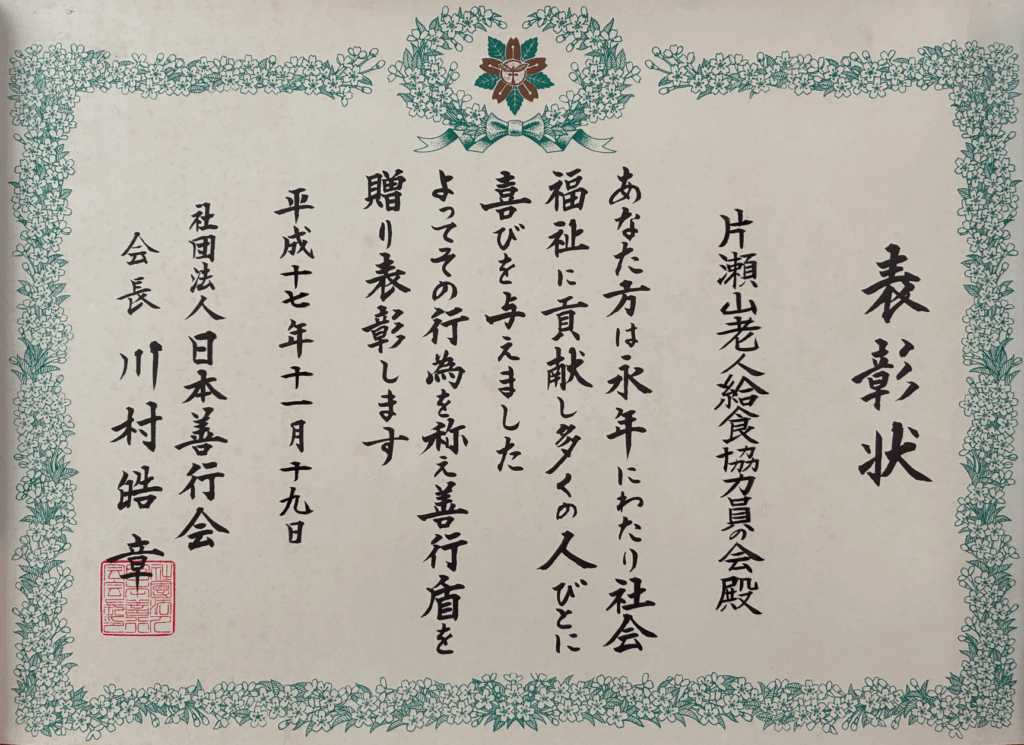 表彰状
片瀬山老人給食協力員の会殿
あなた方は永年にわたり社会
福祉に貢献し多くの人びとに
喜びを与えました
よってその行為を称え善行盾を
贈り表彰します
平成十七年十一月十九日
社団法人日本善行会
会長 川村皓章